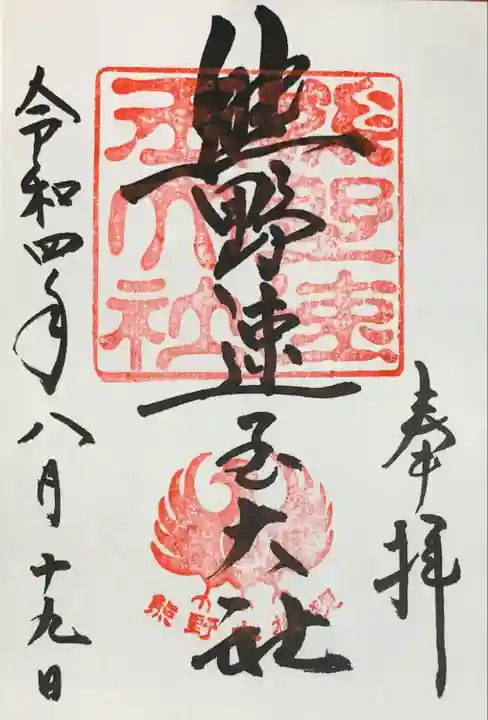 奉拝
熊野速玉大社
熊野速玉大社
熊野
令和四年八月十九日